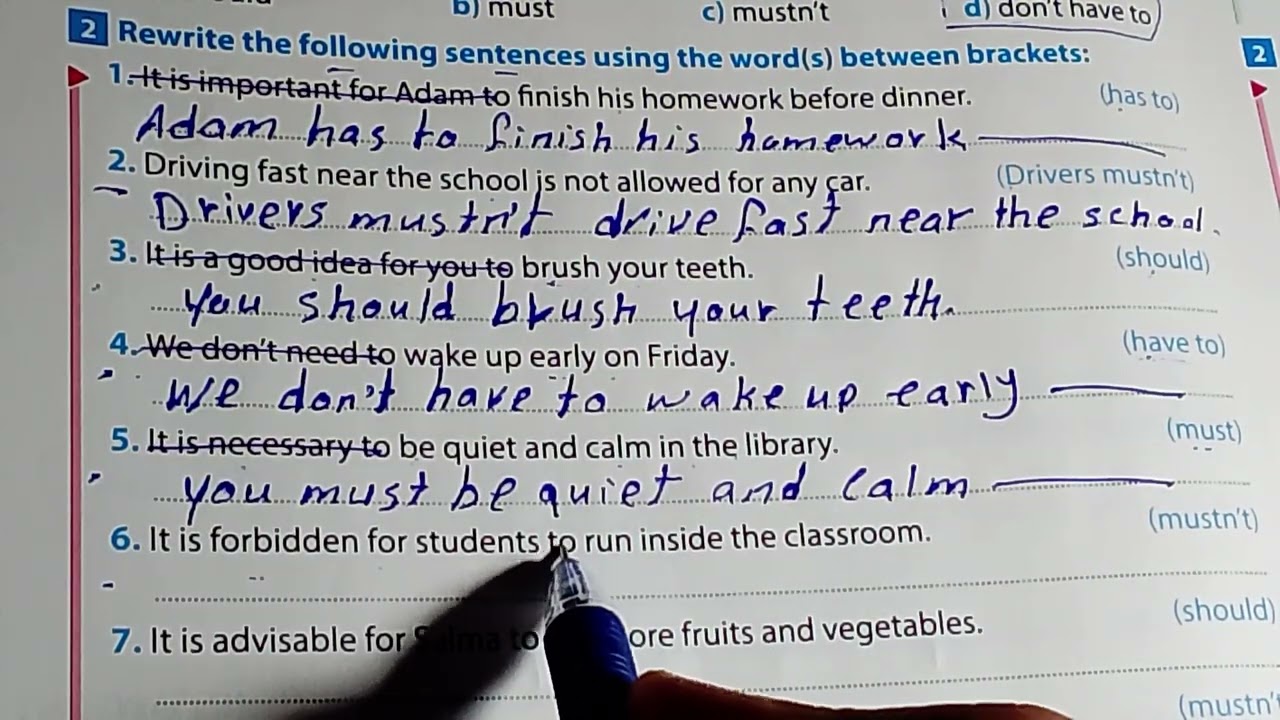 b) must c) mustn't d) don't have to
2 Rewrite the following sentences using the word(s) between brackets: 2
1. It is important for Adam to finish his homework before dinner. (has to)
Adam has to finish his homework
2. Driving fast near the school is not allowed for any car. (Drivers mustn't)
Drivers mustn't drive fast near the school.
3. It is a good idea for you to brush your teeth. (should)
you should brush your teeth.
4. We don't need to wake up early on Friday. (have to)
We don't have to wake up early
5. It is necessary to be quiet and calm in the library. (must)
you must be quiet and calm
6. It is forbidden for students to run inside the classroom. (mustn't)
7. It is advisable for Salma to ore fruits and vegetables. (should)
(mustn't